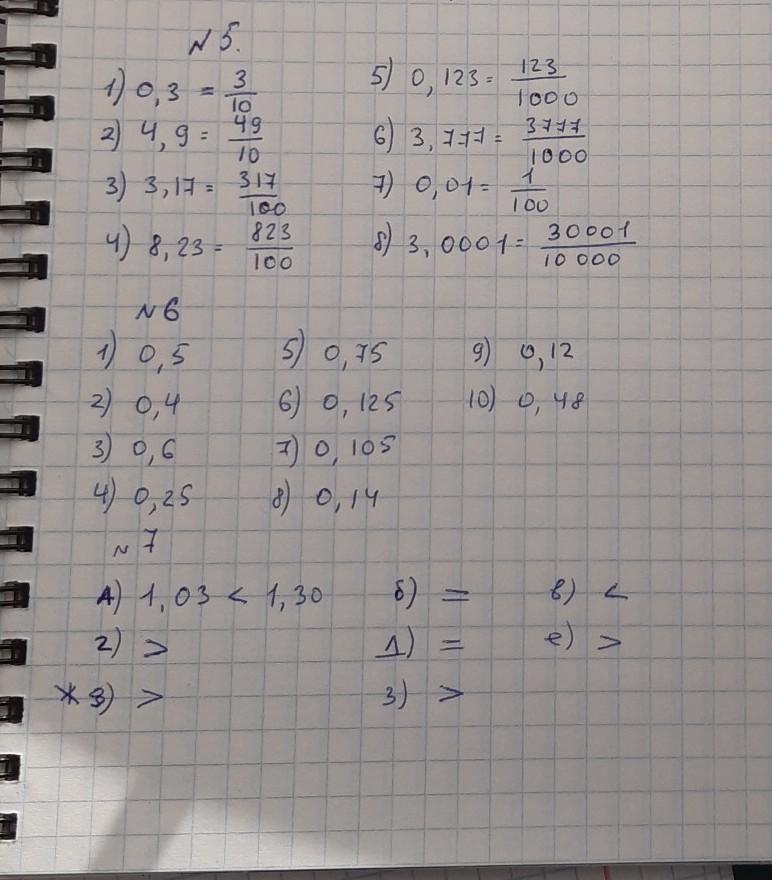 N 5.
1) 0,3 = 3/10 5) 0,123 = 123/1000
2) 4,9 = 49/10 6) 3,777 = 3777/1000
3) 3,17 = 317/100 7) 0,01 = 1/100
4) 8,23 = 823/100 8) 3,0001 = 30001/10 000
N 6
1) 0,5 5) 0,75 9) 0,12
2) 0,4 6) 0,125 10) 0,48
3) 0,6 7) 0,105
4) 0,25 8) 0,14
N 7
А) 1,03 < 1,30 б) = в) <
г) > Д) = е) >
*З) > з) >